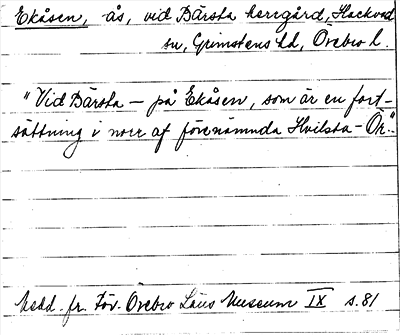 Ekåsen, ås, vid Bärsta herrgård, Hackvad
sn, Grimstens hd, Örebro l.
"Vid Bärsta – på Ekåsen, som är en fort-
sättning i norr af förenämnda Hvilsta-Ök."
Medd. fr. För. Örebro Läns Museum IX s. 81